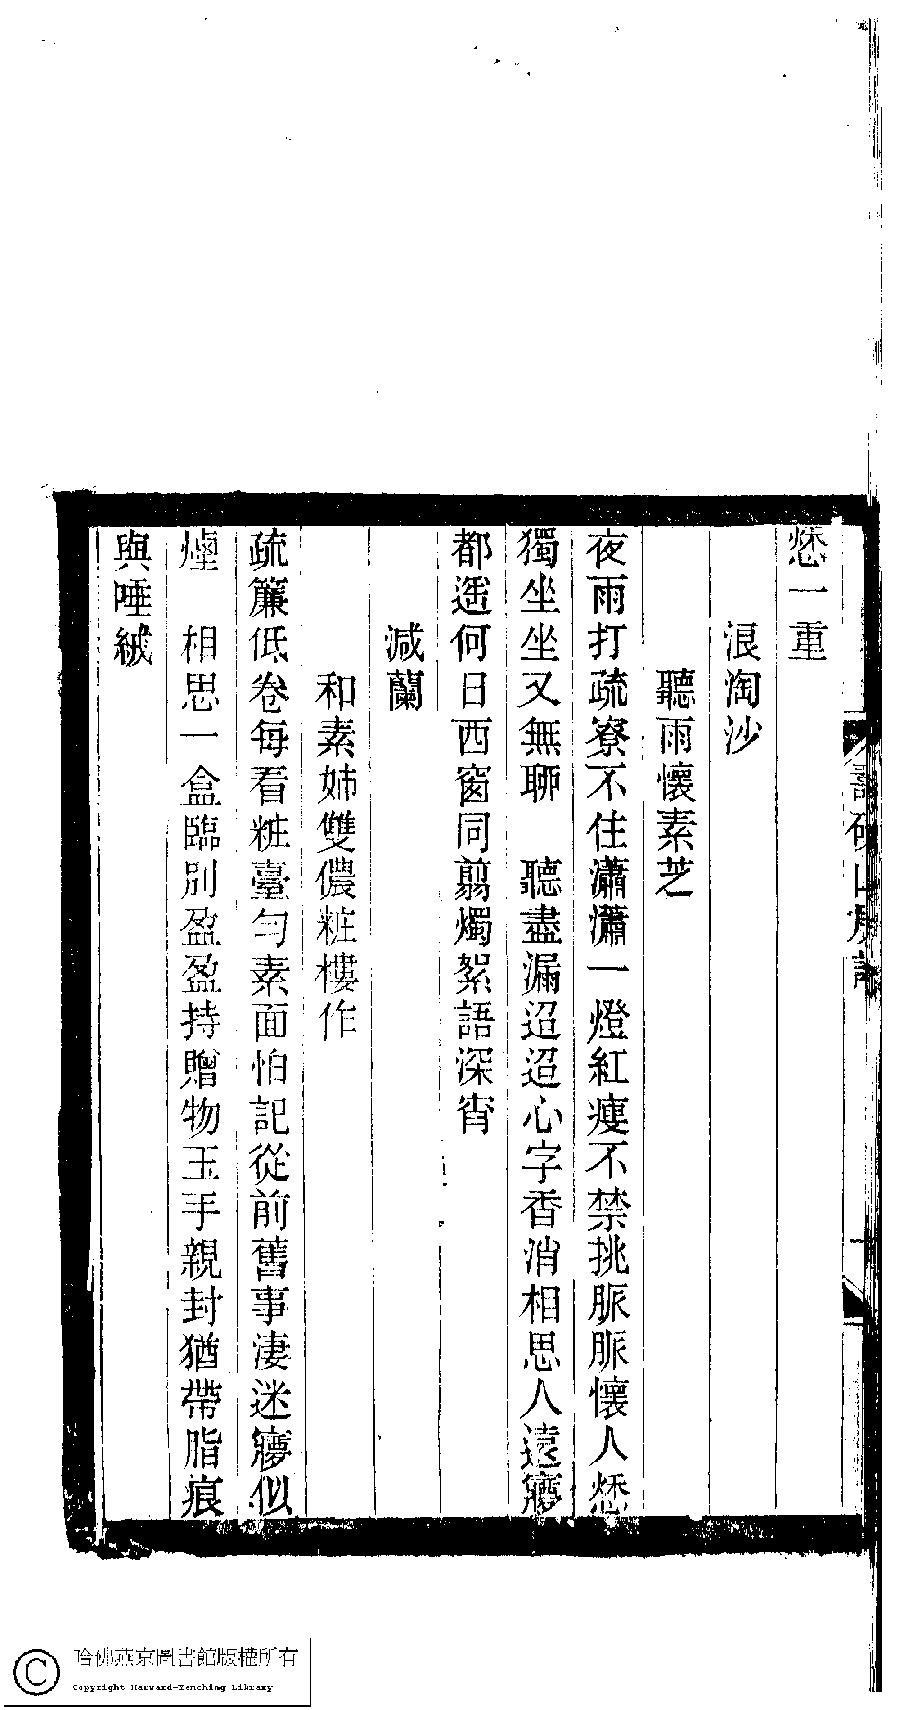 愁一重
浪淘沙
聽雨懷素芝
夜雨打疏寮不住瀟瀟一燈紅瘦不禁挑脈脈懷人愁
獨坐坐又無聊　聽盡漏迢迢心字香消相思人遠夢
都遙何日西窗同翦燭絮語深宵
減蘭
和素姊雙儂粧樓作
疏簾低卷每看粧臺勻素面怕記從前舊事淒迷夢似
煙　相思一盒臨別盈盈持贈物玉手親封猶帶脂痕
與唾絨
哈佛燕京圖書館版權所有
Copyright Harvard-Yenching Library